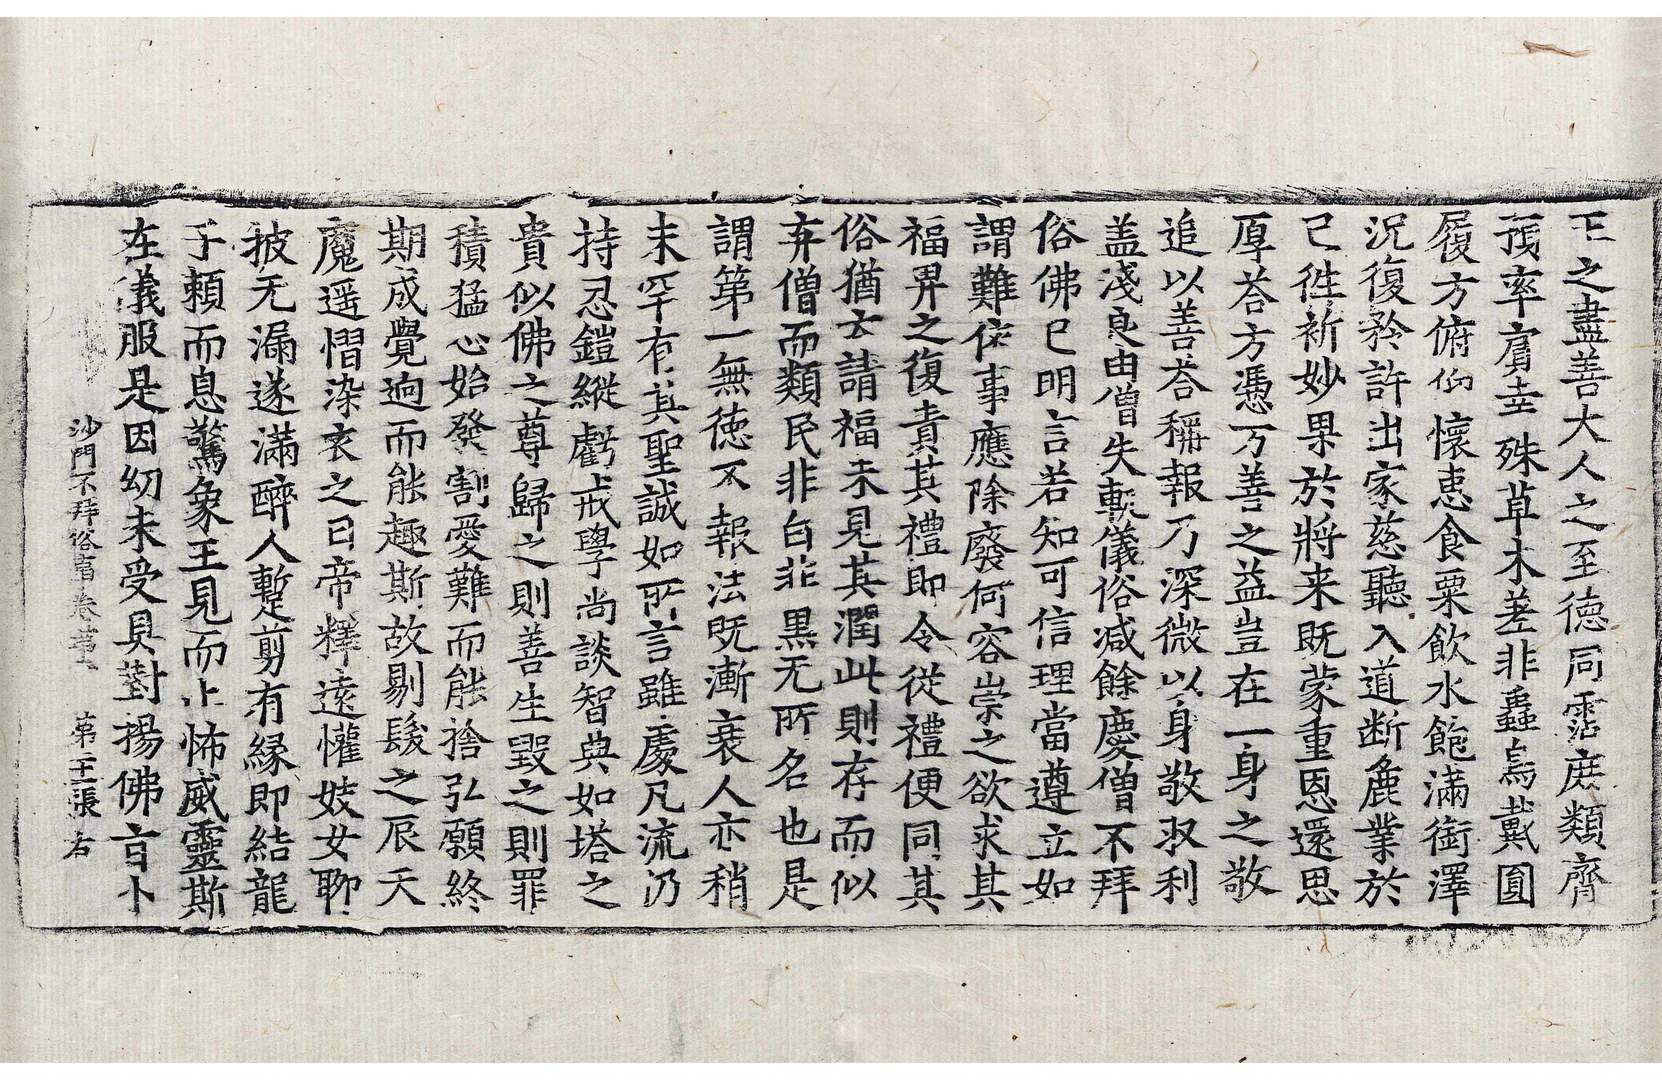 王之盡善大人之至德同霑庶類齊
預率賓幸殊草木差非蠢鳥戴圓
履方俯仰懷恵食粟飲水飽滿銜澤
況復矜許出家慈聽入道断麁業於
已徃祈妙果於將来既蒙重恩還思
厚荅方憑万善之益豈在一身之敬
追以善荅稱報乃深微以身敬収利
盖淺良由僧失軌儀俗减餘慶僧不拜
俗佛已明言若知可信理當遵立如
謂難依事應除廢何容崇之欲求其
福畀之復責其禮即令従禮便同其
俗猶云請福未見其潤此則存而似
弃僧而類民非白非黒无所名也是
謂第一無徳不報法既漸衰人亦稍
末罕有其聖誠如所言雖處凡流仍
持忍鎧縱虧戒學尚談智典如塔之
貴似佛之尊歸之則善生毀之則罪
積猛心始發割愛難而能捨弘願終
期成覺逈而能趣斯故剔髮之辰天
魔遥慴染衣之日帝釋遠懽妓女聊
披无漏遂滿醉人暫剪有縁即結龍
子頼而息驚象王見而止怖威靈斯
在儀服是因幼未受具對揚佛言卜
沙門不拜俗事卷第五 第三張 右